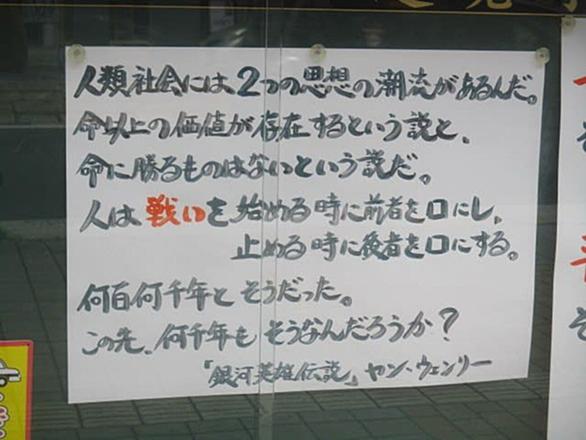 人類社会には2つの思想の潮流があるんだ。
命以上の価値が存在するという説と、
命に勝るものはないという説だ。
人は戦いを始める時に前者を口にし、
止める時に後者を口にする。
何百何千年とそうだった。
この先、何千年もそうなんだろうか?
「銀河英雄伝説」ヤン・ウェンリー